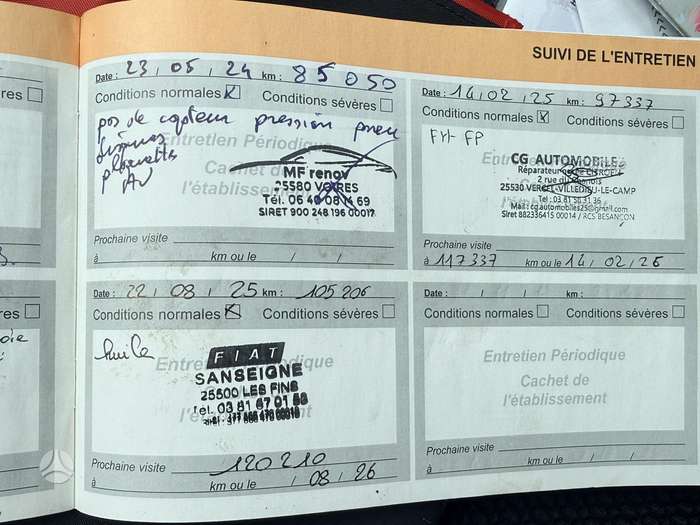 SUIVI DE L'ENTRETIEN
ères
Date : 23, 05, 24 km : 85 050
Conditions normales Conditions sévères
pas de capteur pression pneu
disques
plaquettes
AV
Entretien Périodique
Cachet de
l'établissement
MF renov
25580 VOIRES
Tél. 06 40 08 14 69
SIRET 900 248 196 00017
Prochaine visite
à km ou le / /
Date : 14, 02, 25 km : 97337
Conditions normales Conditions sévères
FH FP
CG AUTOMOBILE
2 rue du
25530 VERCEL-VILLEDIEU-LE-CAMP
Tel : 03 81 58 31 36
Mail : cg.automobiles25@gmail.com
Siret 882336415 00014 / RCS BESANCON
Prochaine visite
à 117337 km ou le 14 / 02 / 26
ères
Date : 22, 08, 25 km : 105206
Conditions normales Conditions sévères
huile
Entretien Périodique
FIAT
SANSEIGNE
25500 LES FINS
Tel. 03 81 67 01 68
Prochaine visite 120210
à km ou le / 08 / 26
Date : / / km :
Conditions normales Conditions sévères
Entretien Périodique
Cachet de
l'établissement
Prochaine visite
à km ou le / /